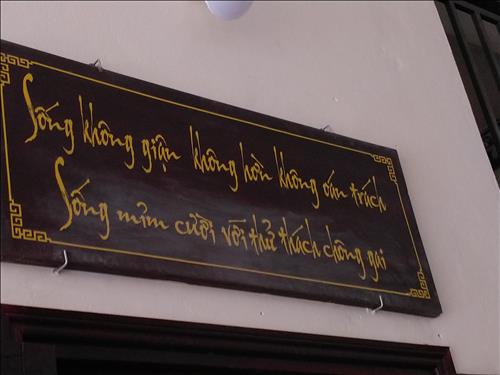 Sống không giận không hờn không oán trách
Sống mỉm cười với thử thách chông gai